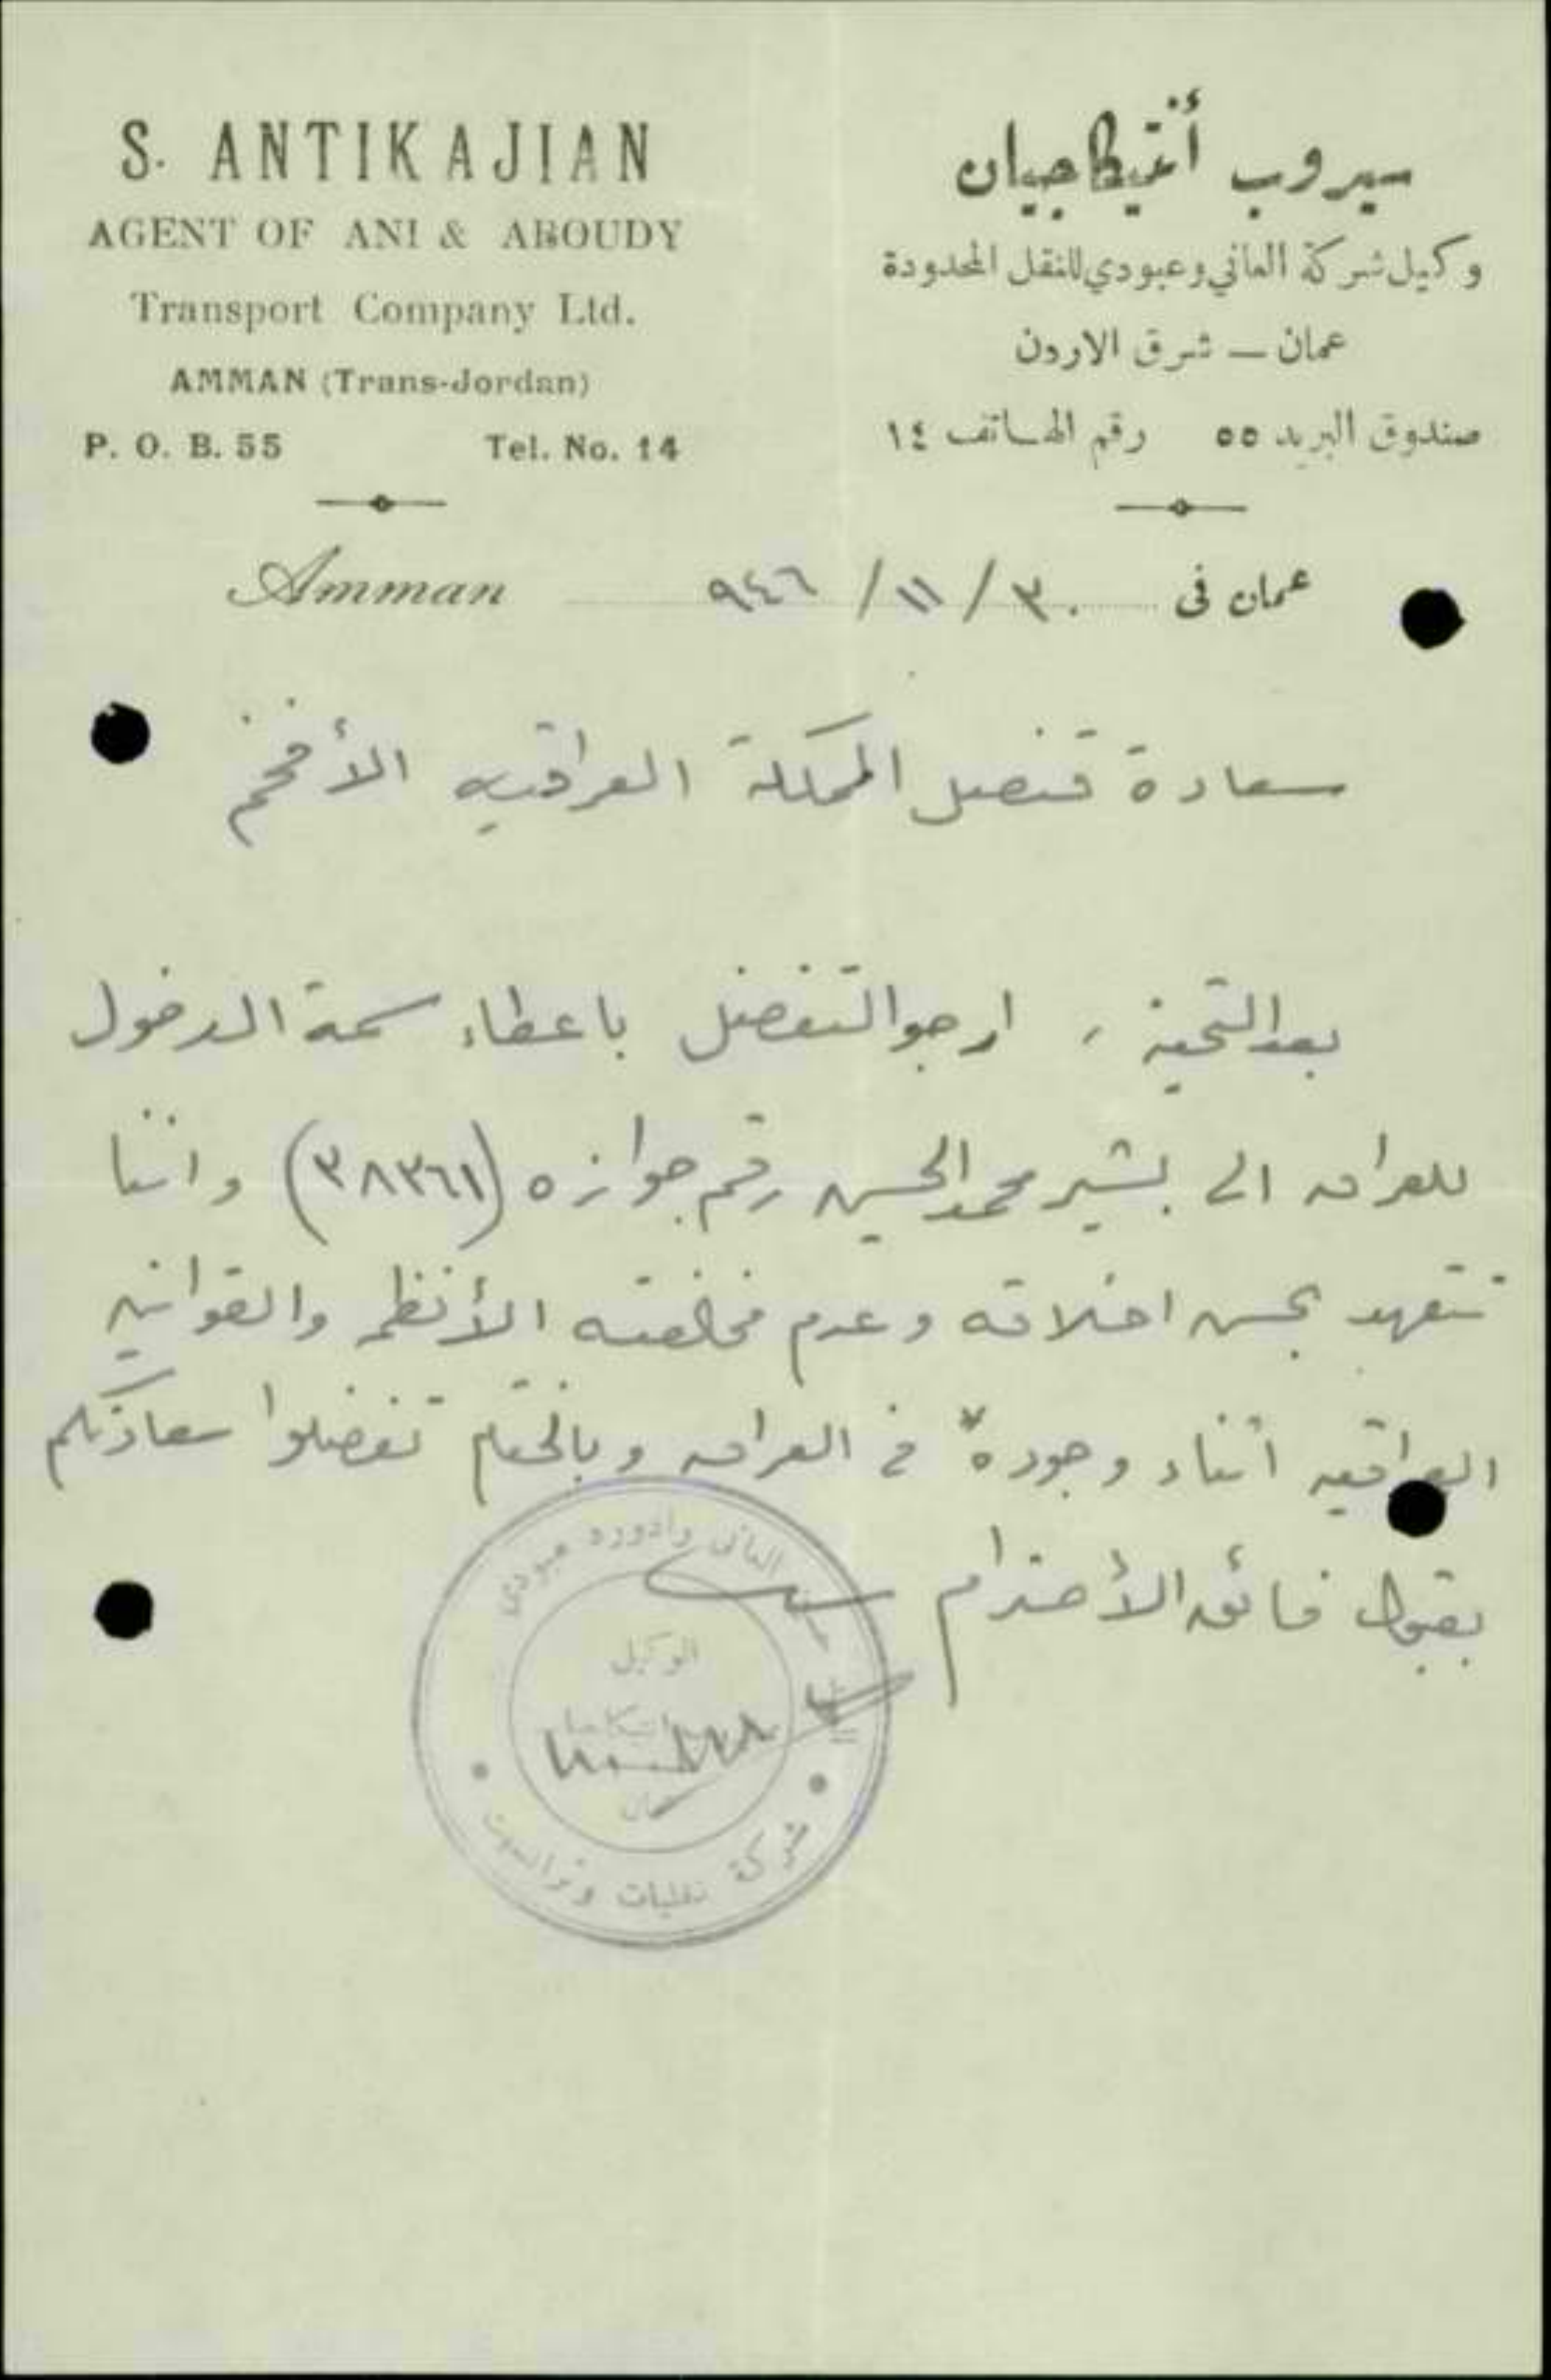 S. ANTIKAJIAN
AGENT OF ANI & ABOUDY
Transport Company Ltd.
AMMAN (Trans-Jordan)
P. O. B. 55 Tel. No. 14
سيروب أنتيكاجيان
وكيل شركة العاني وعبودي للنقل المحدودة
عمان — شرق الاردن
صندوق البريد ٥٥ رقم الهاتف ١٤
عمان فى ٣٠ / ١١ / ٩٤٦ Amman
سعادة قنصل المملكة العراقيه الأفخم
بعد التحية ، ارجو التفضل باعطاء سمة الدخول
للعراق الى بشير محمد الحسين رقم جوازه (٣٨٣٦١) واننا
نتعهد بحسن اخلاقه وعدم مخالفته الأنظمه والقوانين
العراقيه اثناء وجوده في العراق وبالختام تفضلوا سعادتكم
بقبول فائق الأحترام
العاني وادوره عبودي
الوكيل
عمان
شركة نقليات وترانسيت